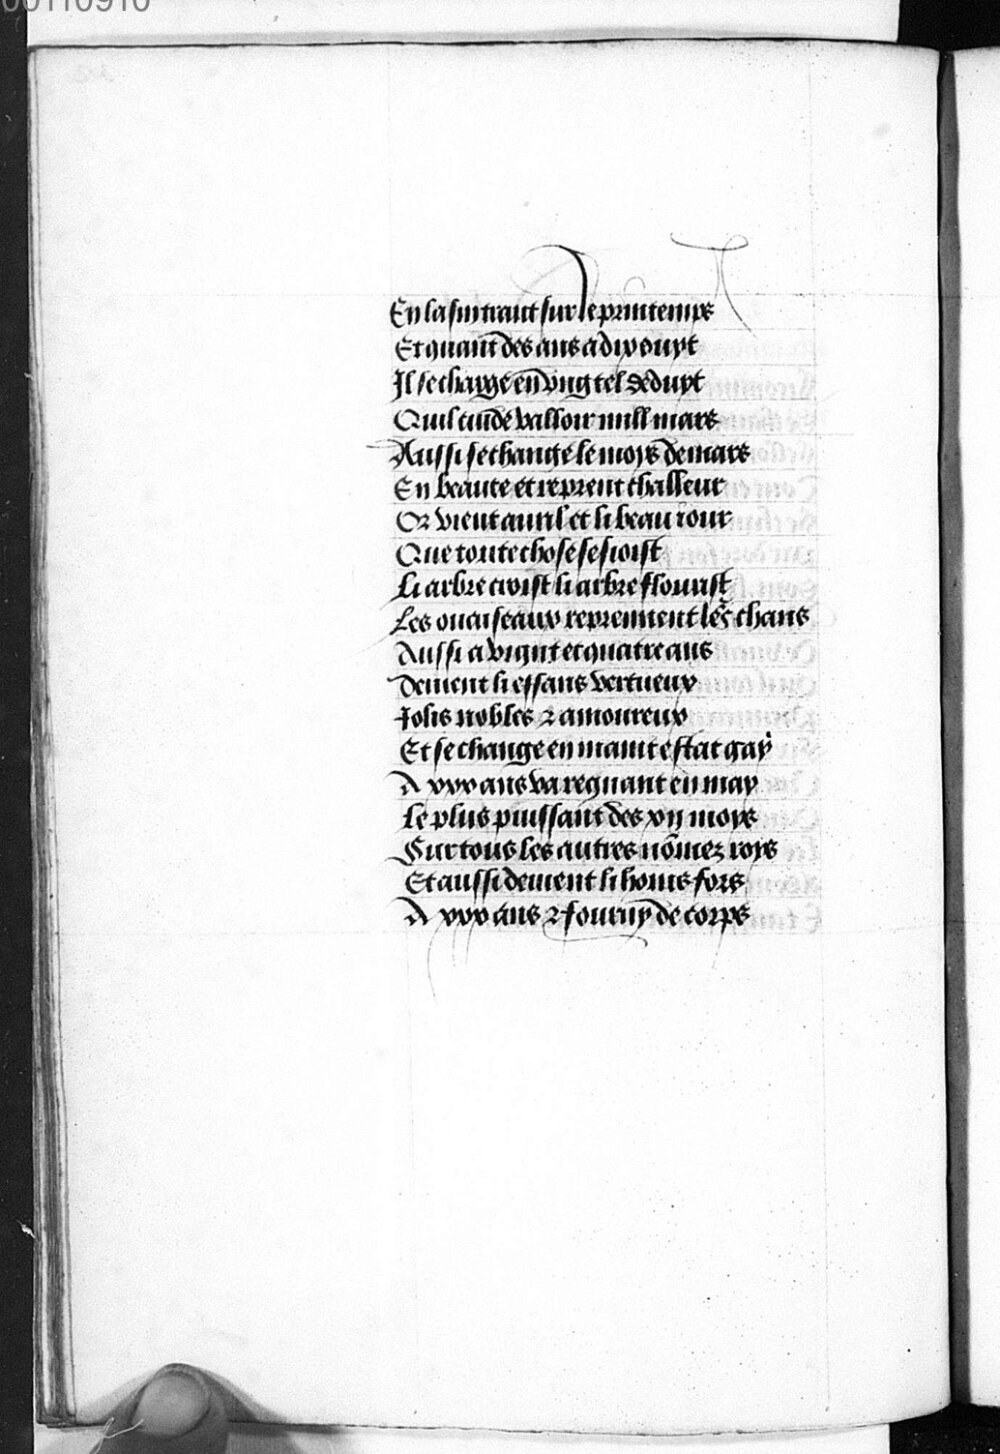 00110910
En lasintrant sur le printemps
Et quant des ans a dixouyt
Il se change en ung tel deduyt
Quil cuide valloir mill mars
Aussi se change le moys de mars
En beaute et reprent challeur
Or vient auril et li beau iour
Que toute chose sesioist
Li arbre croist li arbre flourist
Les ouaiseaux reprennent les chans
Aussi a vignt et quatre ans
Deuient li effans vertueux
Iolis nobles ⁊ amoureux
Et se change en maint estat gay
A xxx ans va regnant en may
Le plus puissant des xij moys
Sur tous les autres nōmez roys
Et aussi deuient li homs fors
A xxx ans ⁊ fourny de corps